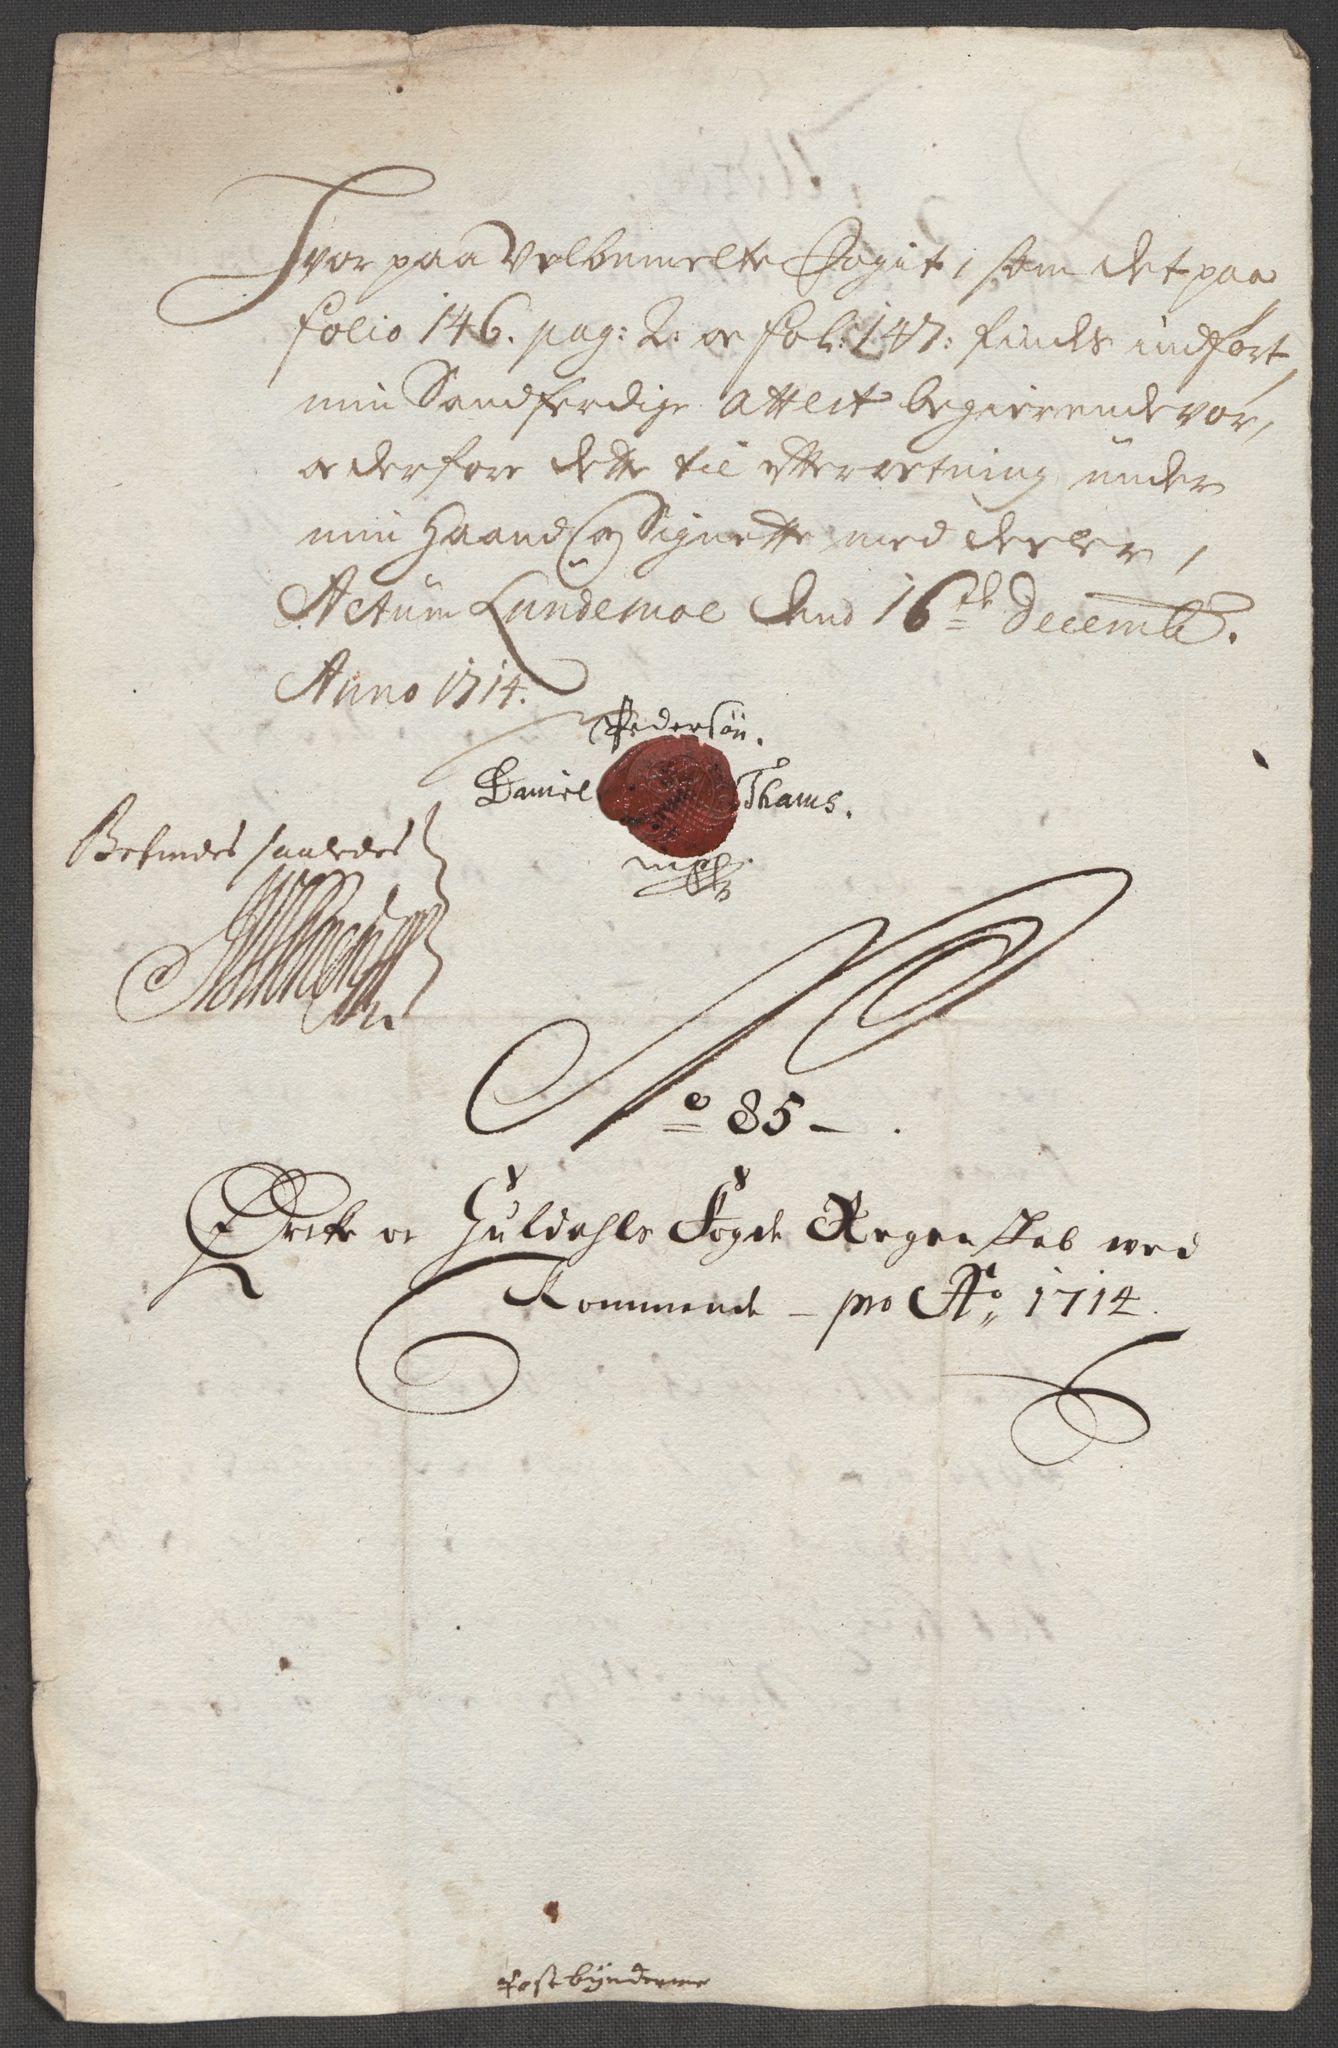 Hvor paa Velbemelte Fogit, som det paa
folio 146. pag: 2. oc fol: 147: findes indført,
min Sandferdige Attest begierende vor,
oc derfore dette til efterretning under
min Haand og Signette med deeler,
Actum Lundemoe dend 16de Decembr.
Anno 1714.
Pedersøn.
Daniel Thams.
mpp
Befindes saaledes
No 85 -
Orcke oc Guldahls Fogde Regenskab wed
Kommende - pro Ao 1714.
Postbynderne